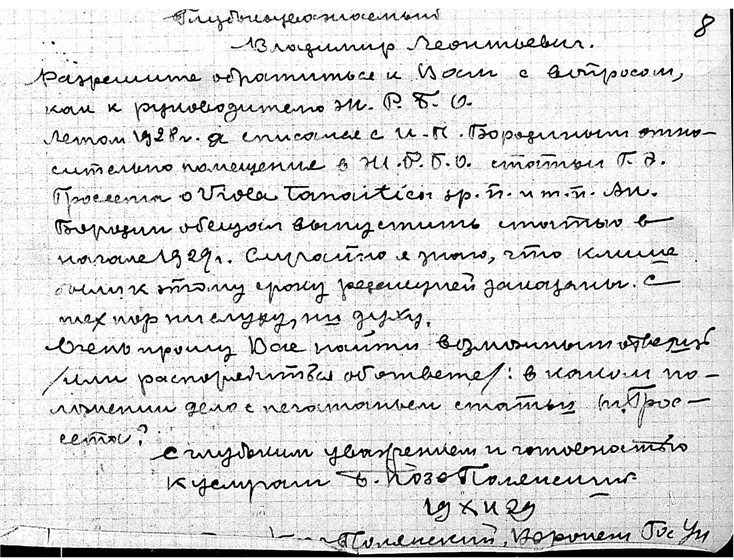 Глубокоуважаемый
8
Владимир Леонтьевич.
Разрешите обратиться к Вам с вопросом,
как к руководителю Ж. Р. Б. О.
Летом 1928 г. я списался с И. П. Бородиным отно-
сительно помещения в Ж. Р. Б. О. статьи Г. Э.
Гроссета о Viola tanaitica sp. n. и т. п. Ак.
Бородин обещал выпустить статью в
начале 1929 г. Случайно я знаю, что клише
были к этому сроку редакцией заказаны. С
тех пор ни слуху, ни духу.
Очень прошу Вас найти возможным ответить
/или распорядиться об ответе/: в каком по-
ложении дело с печатаньем статьи Грос-
сета?
с глубоким уважением и готовностью
к услугам Б. Козо-Полянский
19 XII 29
Полянский, Воронеж Гос Ун